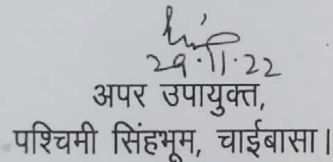 29.11.22
अपर उपायुक्त,
पश्चिमी सिंहभूम, चाईबासा।